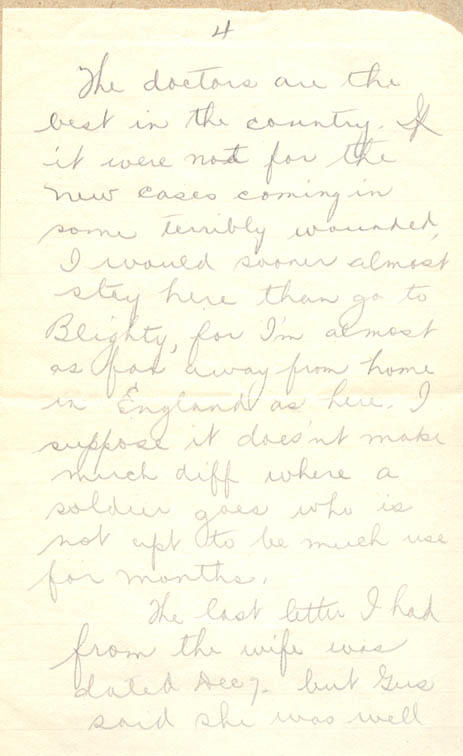 4
The doctors are the
best in the country. If
it were not for the
new cases coming in
some terribly wounded,
I would sooner almost
stay here than go to
Blighty, for I'm almost
as far away from home
in England as here. I
suppose it does'nt make
much diff where a
soldier goes who is
not apt to be much use
for months.
The last letter I had
from the wife was
dated Dec 7. but Gus
said she was well